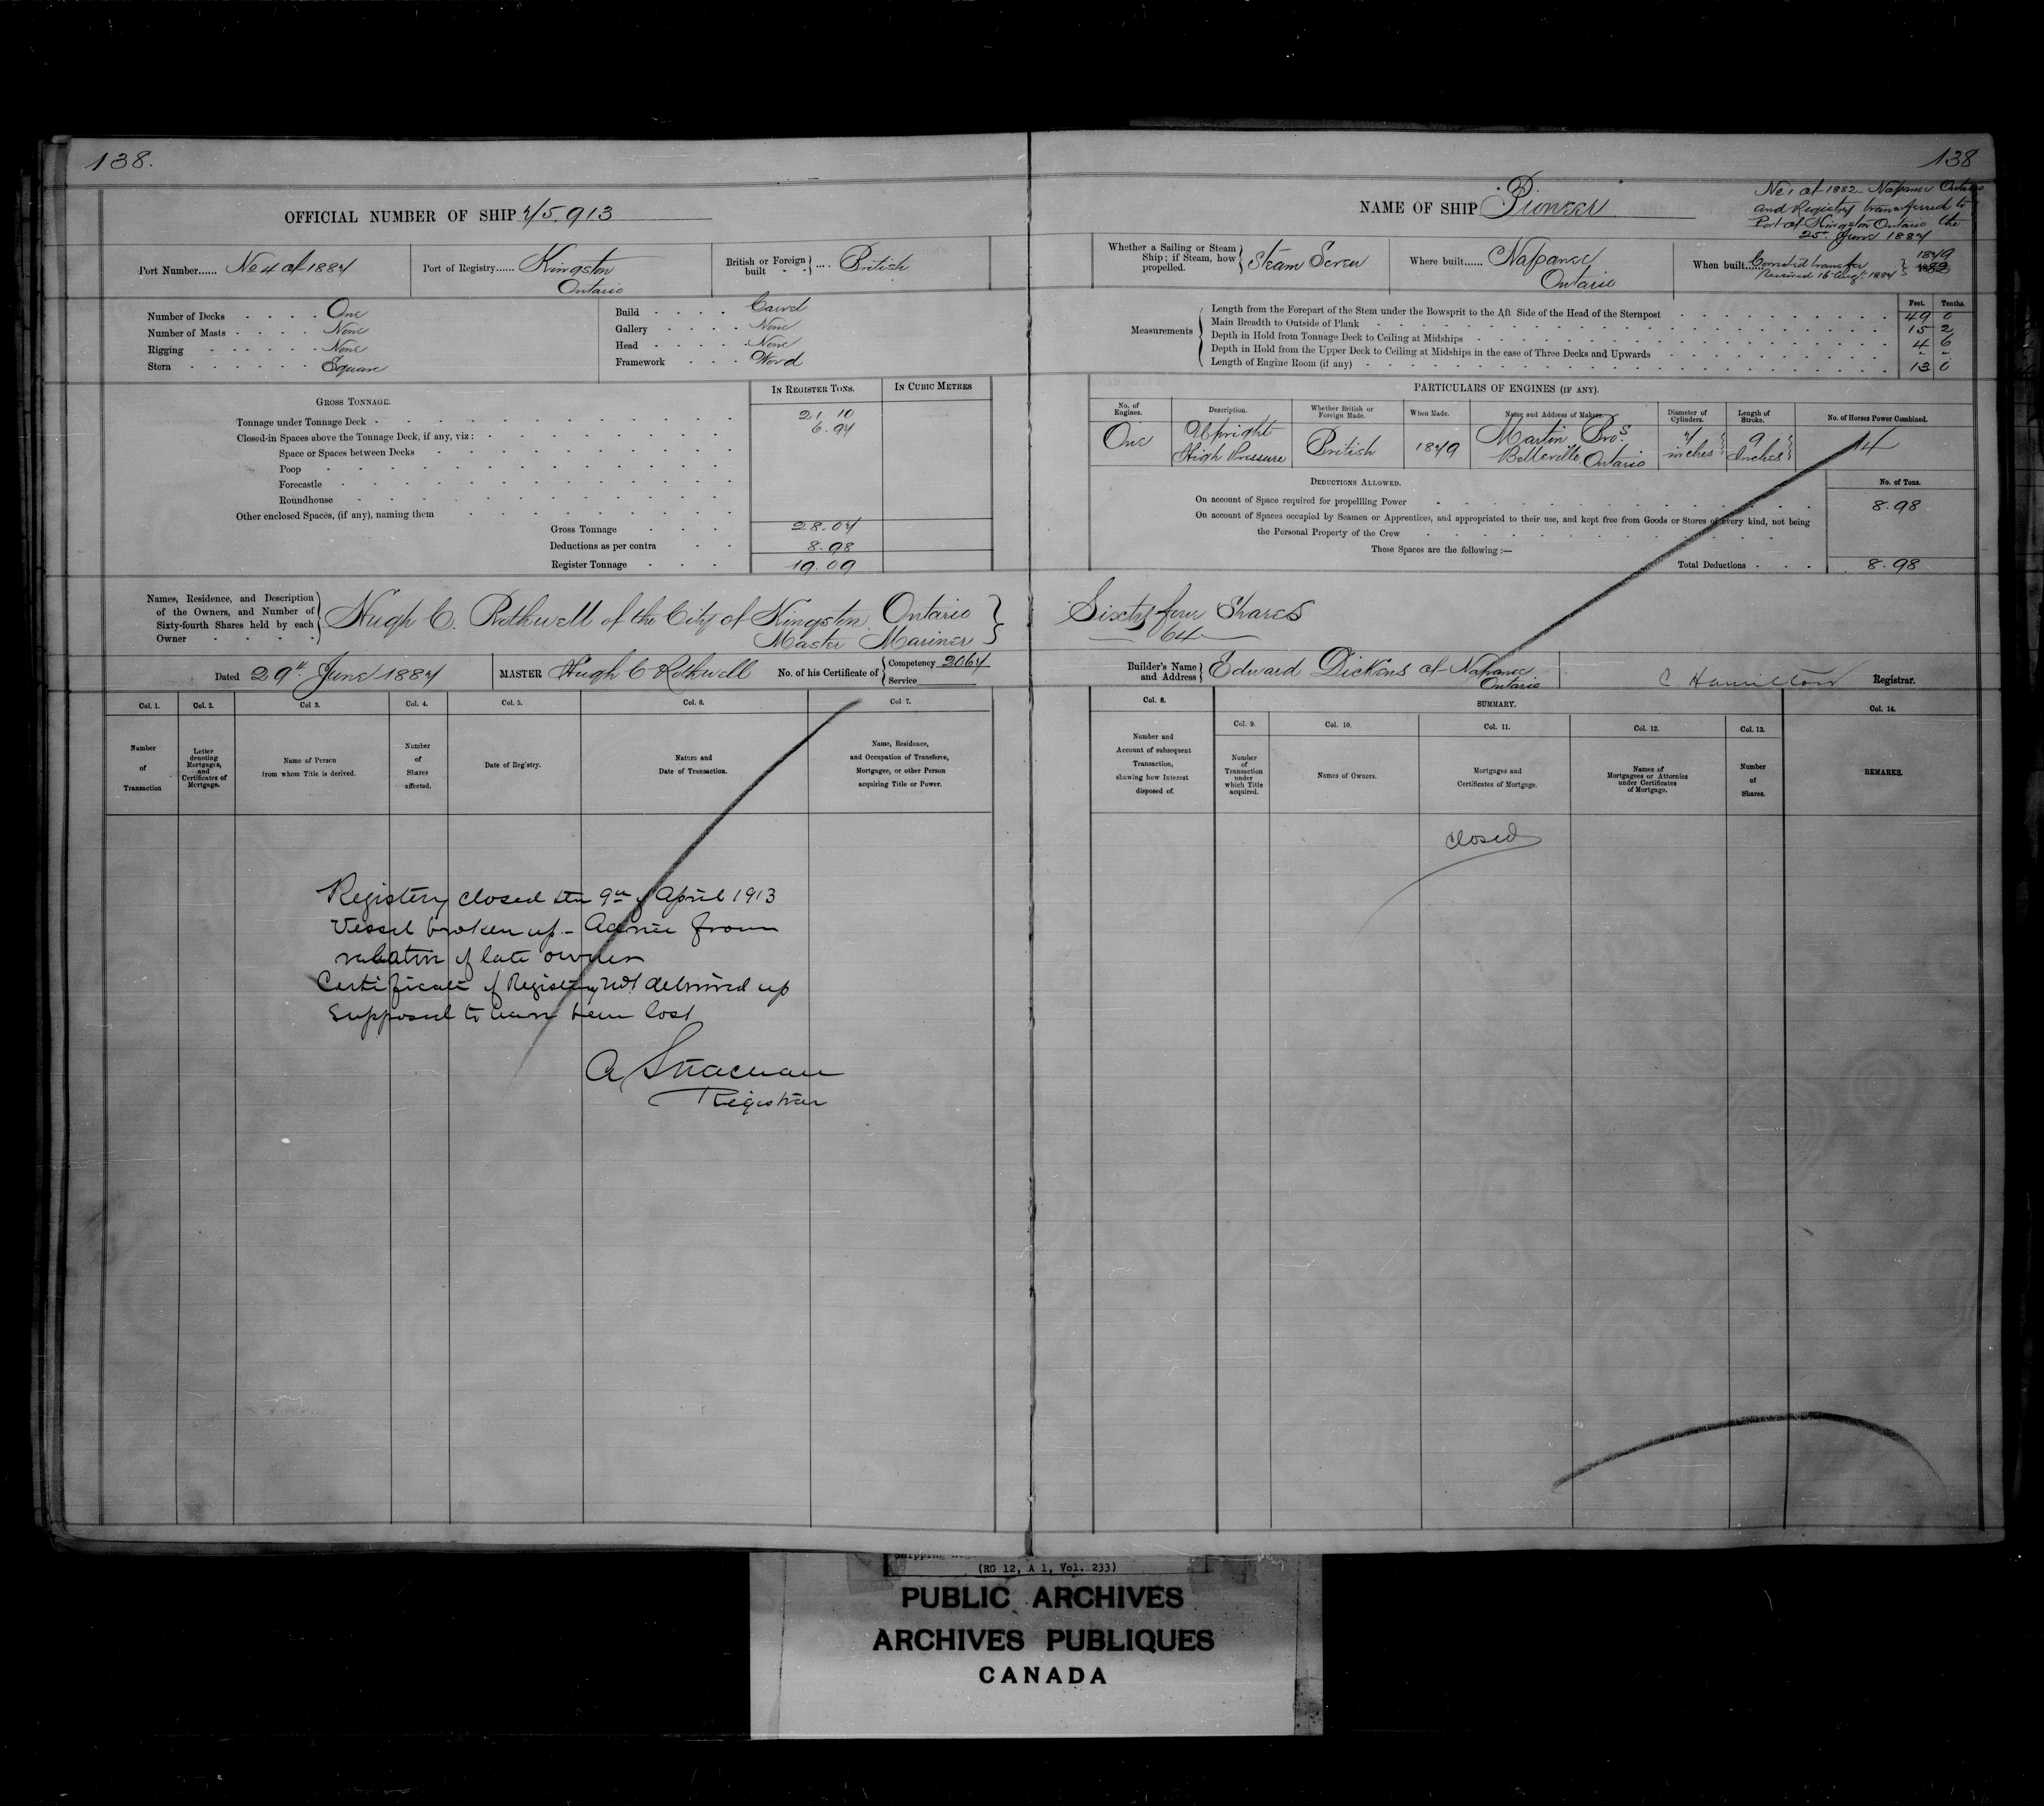 138.
OFFICIAL NUMBER OF SHIP 75,913
Port Number...... No 4 of 1887
Port of Registry...... Kingston
Ontario
British or Foreign built .... British
Number of Decks One
Number of Masts None
Rigging None
Stern Square
Build Carvel
Gallery None
Head None
Framework Wood
GROSS TONNAGE.
IN REGISTER TONS.
IN CUBIC METRES
Tonnage under Tonnage Deck 21.10
Closed-in Spaces above the Tonnage Deck, if any, viz: 6.97
Space or Spaces between Decks
Poop
Forecastle
Roundhouse
Other enclosed Spaces, (if any), naming them
Gross Tonnage 28.07
Deductions as per contra 8.98
Register Tonnage 19.09
Names, Residence, and Description
of the Owners, and Number of
Sixty-fourth Shares held by each
Owner
Hugh C. Rothwell of the City of Kingston Ontario
Master Mariner
Dated 29th June 1887
MASTER Hugh C Rothwell
No. of his Certificate of
Competency 2067
Service
Col. 1.
Col. 2.
Col 3.
Col. 4.
Col. 5.
Col. 6.
Col 7.
Number
of
Transaction
Letter
denoting
Mortgages,
and
Certificates of
Mortgage.
Name of Person
from whom Title is derived.
Number
of
Shares
affected.
Date of Registry.
Nature and
Date of Transaction.
Name, Residence,
and Occupation of Transferee,
Mortgagee, or other Person
acquiring Title or Power.
Registery closed the 9th of April 1913
Vessel broken up - Advice from
relative of late owner
Certificate of Registery not delivered up
Supposed to have been lost
A Strachan
Registrar
138
NAME OF SHIP Pioneer
No 1 of 1882 Napanee Ontario
and Registry transferred to
Port of Kingston Ontario the
25th June 1887
Whether a Sailing or Steam
Ship; if Steam, how
propelled.
Steam Screw
Where built...... Napanee
Ontario
When built......
1879
1882
Received 16 Augt 1887
Measurements
Feet. Tenths.
Length from the Forepart of the Stem under the Bowsprit to the Aft Side of the Head of the Sternpost 49 0
Main Breadth to Outside of Plank 15 2
Depth in Hold from Tonnage Deck to Ceiling at Midships 4 6
Depth in Hold from the Upper Deck to Ceiling at Midships in the case of Three Decks and Upwards - -
Length of Engine Room (if any) 13 0
PARTICULARS OF ENGINES (IF ANY).
No. of Engines.
Description.
Whether British or Foreign Made.
When Made.
Name and Address of Makers.
Diameter of Cylinders.
Length of Stroke.
No. of Horses Power Combined.
One
Upright
High Pressure
British
1879
Martin Bros
Belleville, Ontario
7 inches
9 Inches
14
DEDUCTIONS ALLOWED.
No. of Tons.
On account of Space required for propelling Power 8.98
On account of Spaces occupied by Seamen or Apprentices, and appropriated to their use, and kept free from Goods or Stores of every kind, not being
the Personal Property of the Crew
These Spaces are the following:—
Total Deductions 8.98
Sixty four Shares
64
Builder's Name
and Address
Edward Dickens of Napanee
Ontario
C. Hamilton Registrar.
Col. 8.
SUMMARY.
Col. 14.
Col. 9.
Col. 10.
Col. 11.
Col. 12.
Col. 13.
Number and
Account of subsequent
Transaction,
showing how Interest
disposed of.
Number
of
Transaction
under
which Title
acquired.
Names of Owners.
Mortgages and
Certificates of Mortgage.
Names of
Mortgagees or Attornies
under Certificates
of Mortgage.
Number
of
Shares.
REMARKS.
closed
(RG 12, A 1, Vol. 233)
PUBLIC ARCHIVES
ARCHIVES PUBLIQUES
CANADA